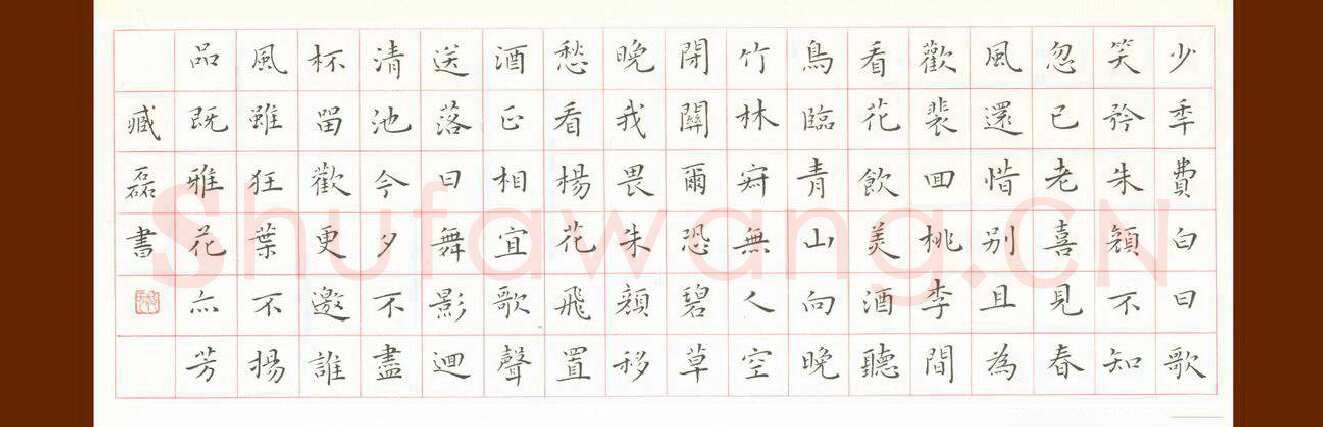 少秊費白日歌
笑矜朱顏不知
忽已老喜見春
風還惜别且為
歡裴回桃李間
看花飲美酒聽
鳥臨青山向晚
竹林寂無人空
閉關爾恐碧草
晚我畏朱顏移
愁看楊花飛置
酒正相宜歌聲
送落日舞影迴
清池今夕不盡
杯留歡更邀誰
風雖狂葉不揚
品既雅花亦芳
臧磊書
Shufawang.CN